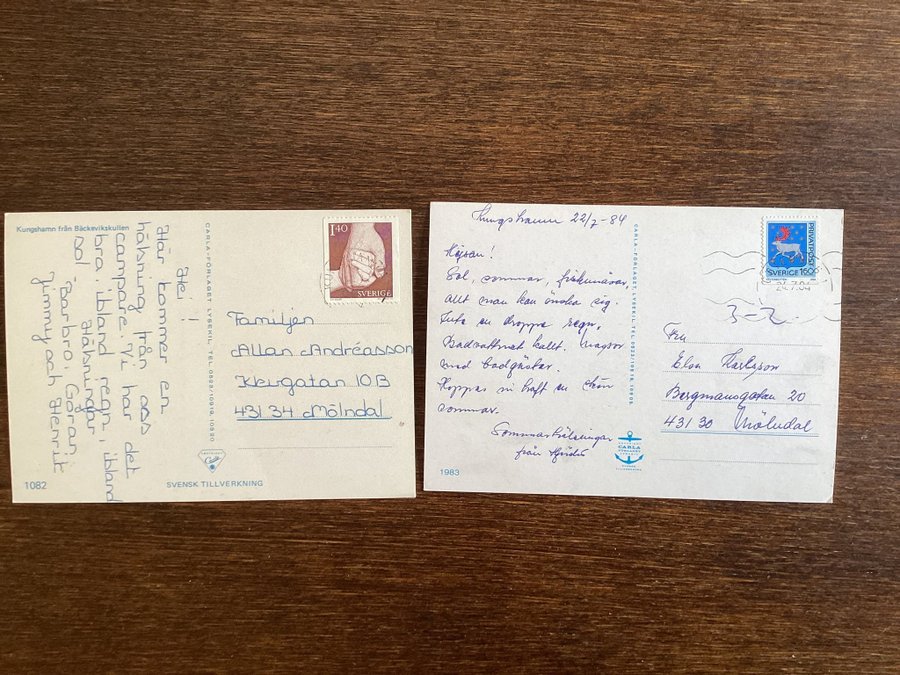 Kungshamn från Bäckevikskullen
Hej!
Här kommer en
hälsning från oss
campare. Vi har det
bra ibland regn, ibland
sol. Hälsningar
Barbro, Göran,
Jimmy och Henrik
CARLA-FÖRLAGET LYSEKIL, TEL. 0523/10919, 10520
1.40
SVERIGE
Familjen
Allan Andréasson
Kleingatan 10B
431 34 Mölndal
1082
SVENSK TILLVERKNING
Kungshamn 22/7-84
Höjsan!
Sol, sommar, friluftsväder
Allt man kan önska sig.
Inte en droppe regn,
Badvattnet kallt. Massor
med badgäster.
Hoppas ni haft en skön
sommar.
Sommarhälsningar
från
CARLA-FÖRLAGET LYSEKIL
PRIVATPOST
SVERIGE 160
24.7.84
3-2.
Fru
Elsa Karlsson
Bergmansgatan 20
431 30 Mölndal
CARLA
1983